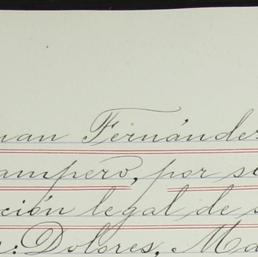 uan Fernández
ampero, por sí
ción legal de s
s: Dolores, Ma